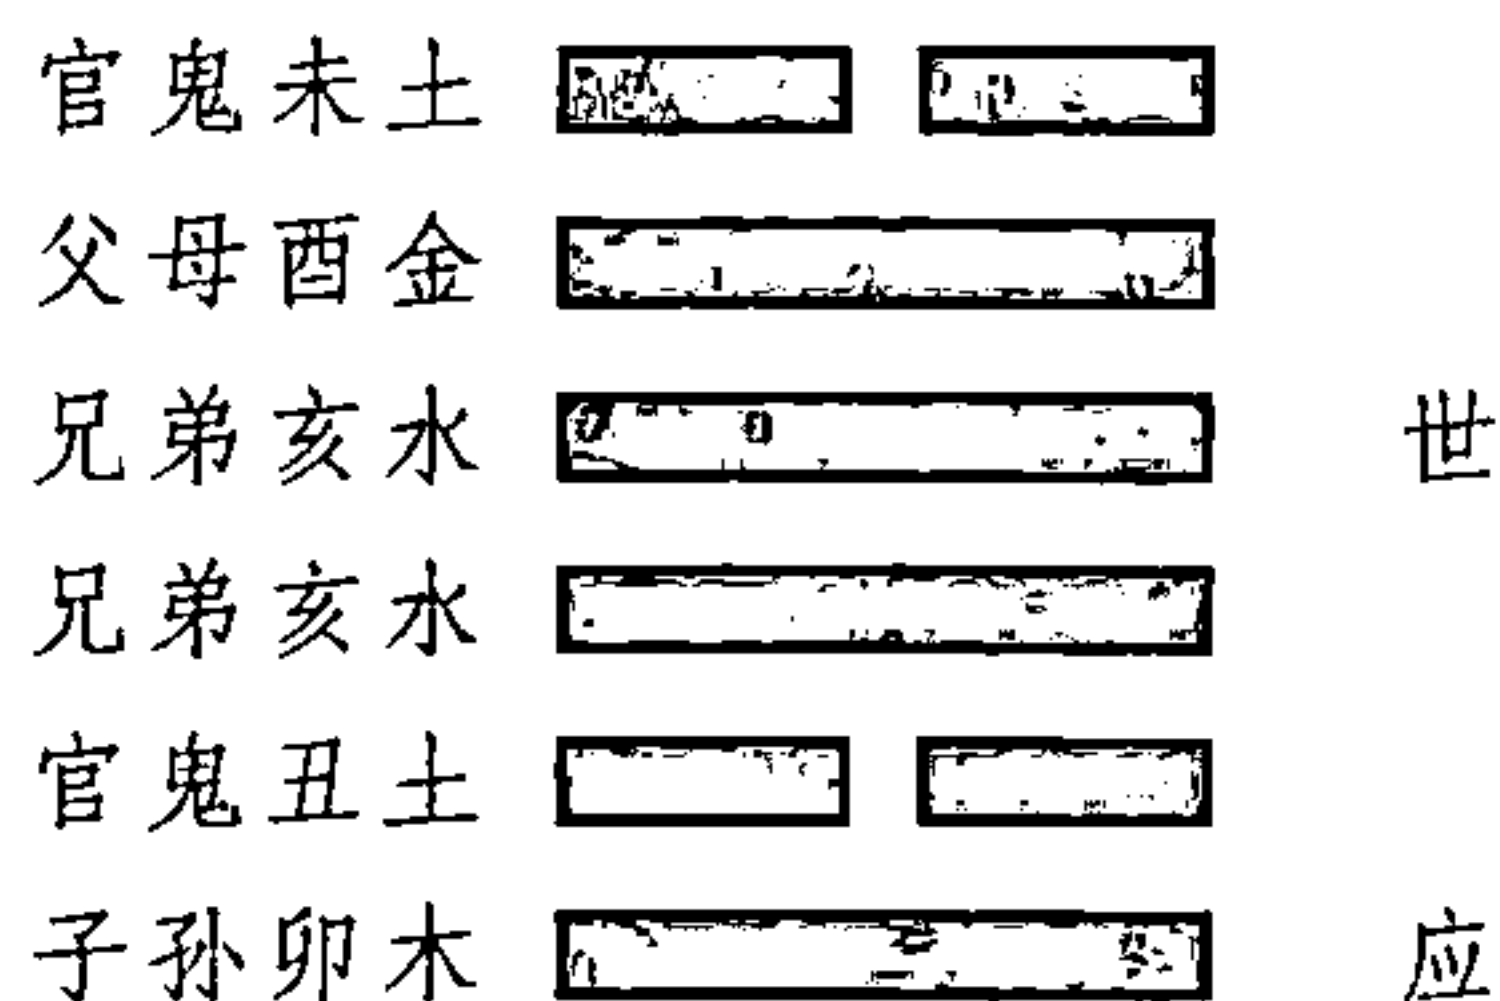 官鬼未土
父母酉金
兄弟亥水 世
兄弟亥水
官鬼丑土
子孙卯木 应